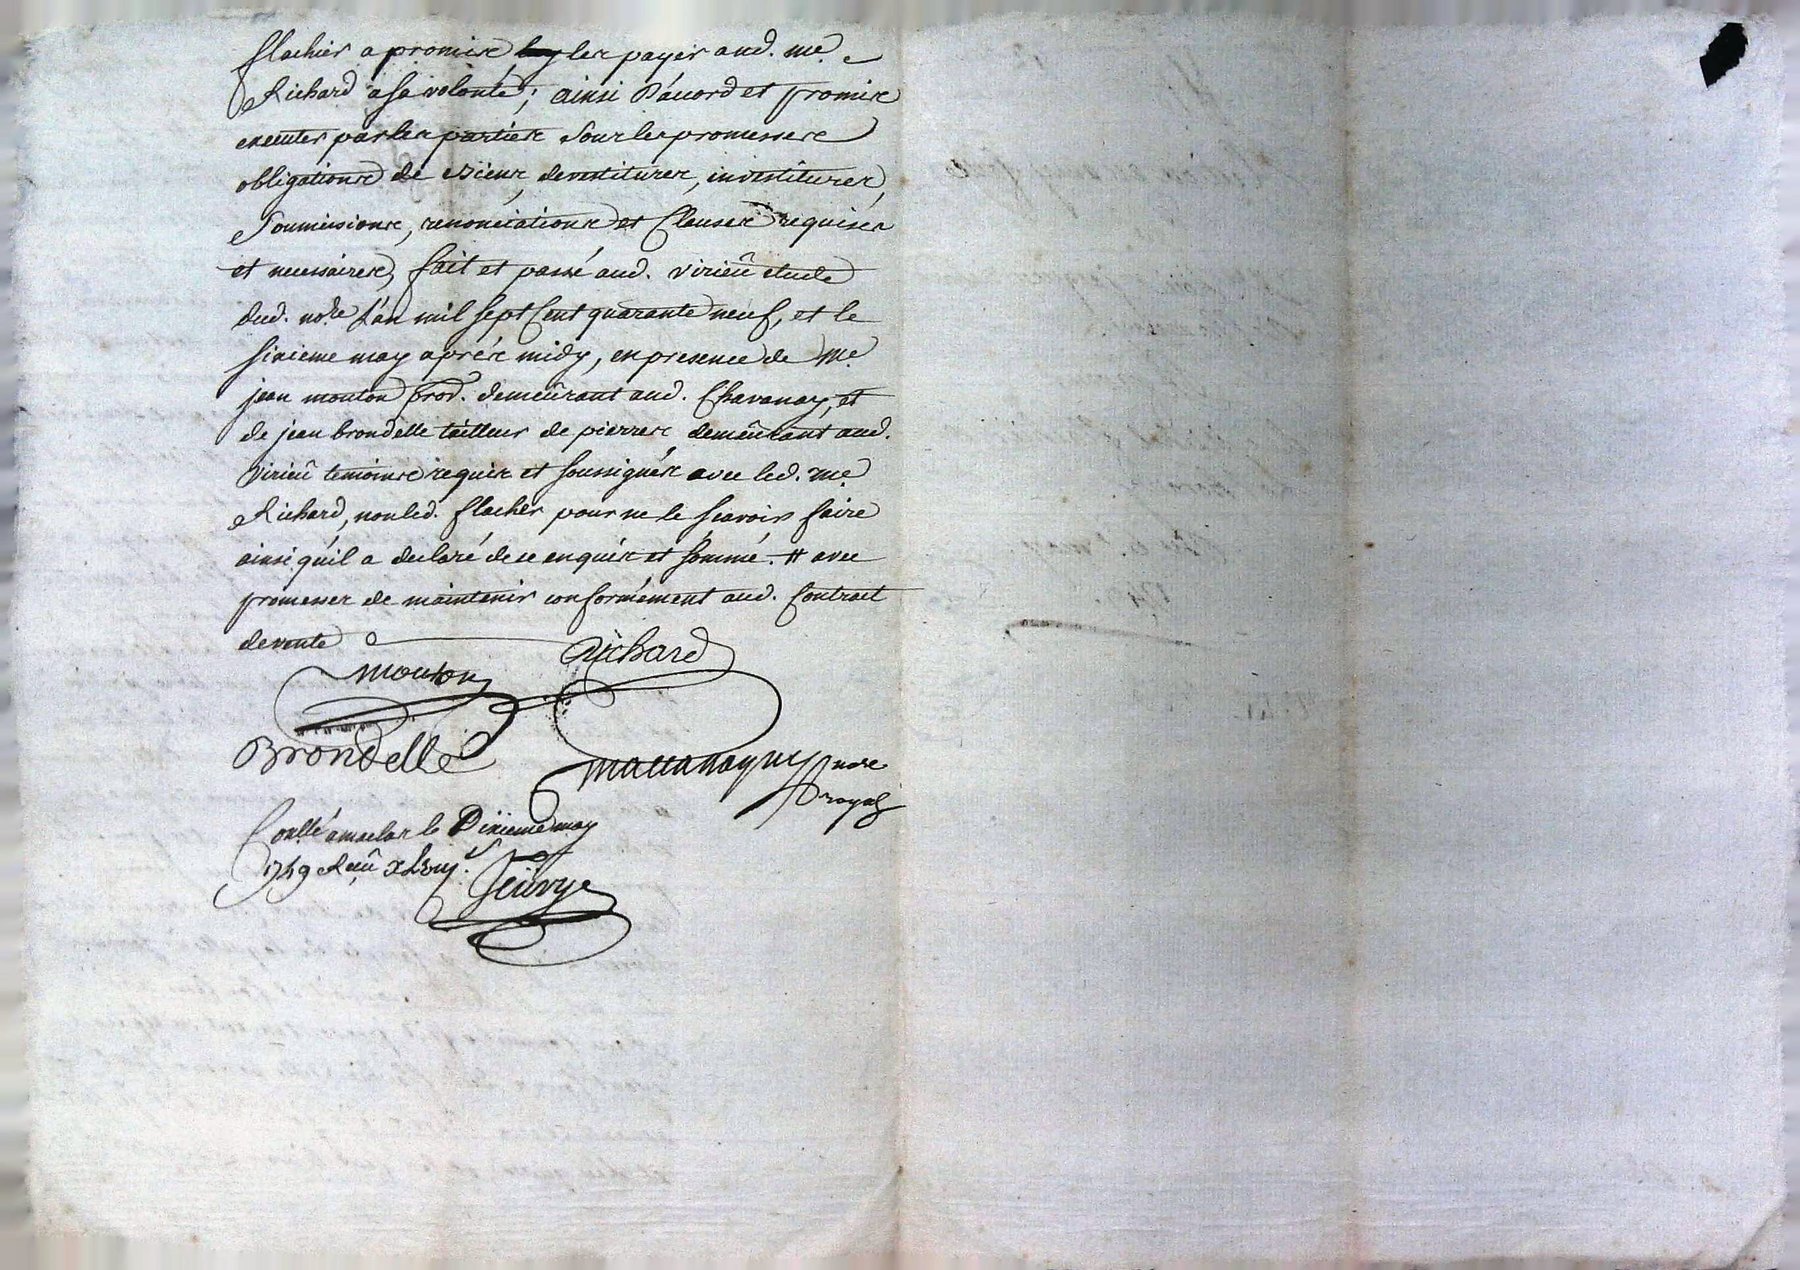 flachier a promise les payer aud. me.
Richard a sa volonté; ainsi d'acord et promise
executer par les partiese sour les promessese
obligationse de Bienr, devestiturer, investiturer,
Soumissionse, renonciationse et Clausese requiser
et necessairese, fait et passé aud. virieû etude
dud. nore. L'an mil sept Cent quarante neuf, et le
sixieme may aprése midy, en presence de Me.
jean mouton prod. demeûrant aud. Chavanay, et
de jean brondelle tailleur de pierrese demeûrant aud.
virieû temoinse requir et soussignése avec led. me.
Richard, non led. flachér pour ne le scavoir faire
ainsi qu'il a declaré de ce enquir et sommé. # avec
promesser de maintenir conformément aud. Contract
de vente
Mouton Richard
Brondelle
nore
royal
Conllé a maclas le Dixieme may
1749 Reçû